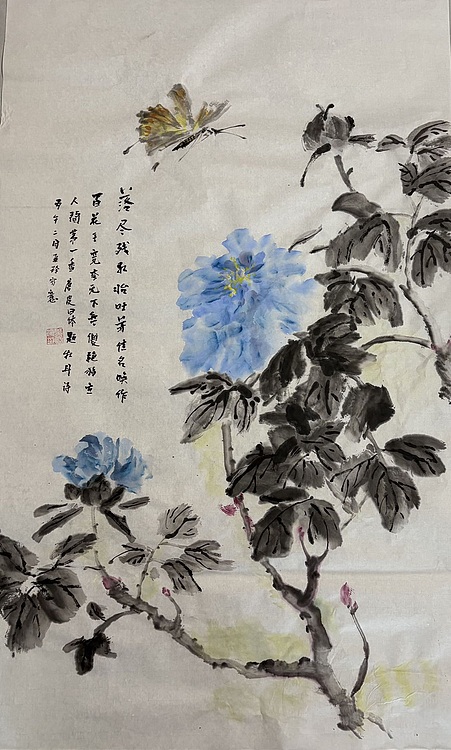 落尽残红始吐芳佳名唤作
百花王竞夸天下無双艳独立
人间第一香唐皮日休题牡丹诗
二月